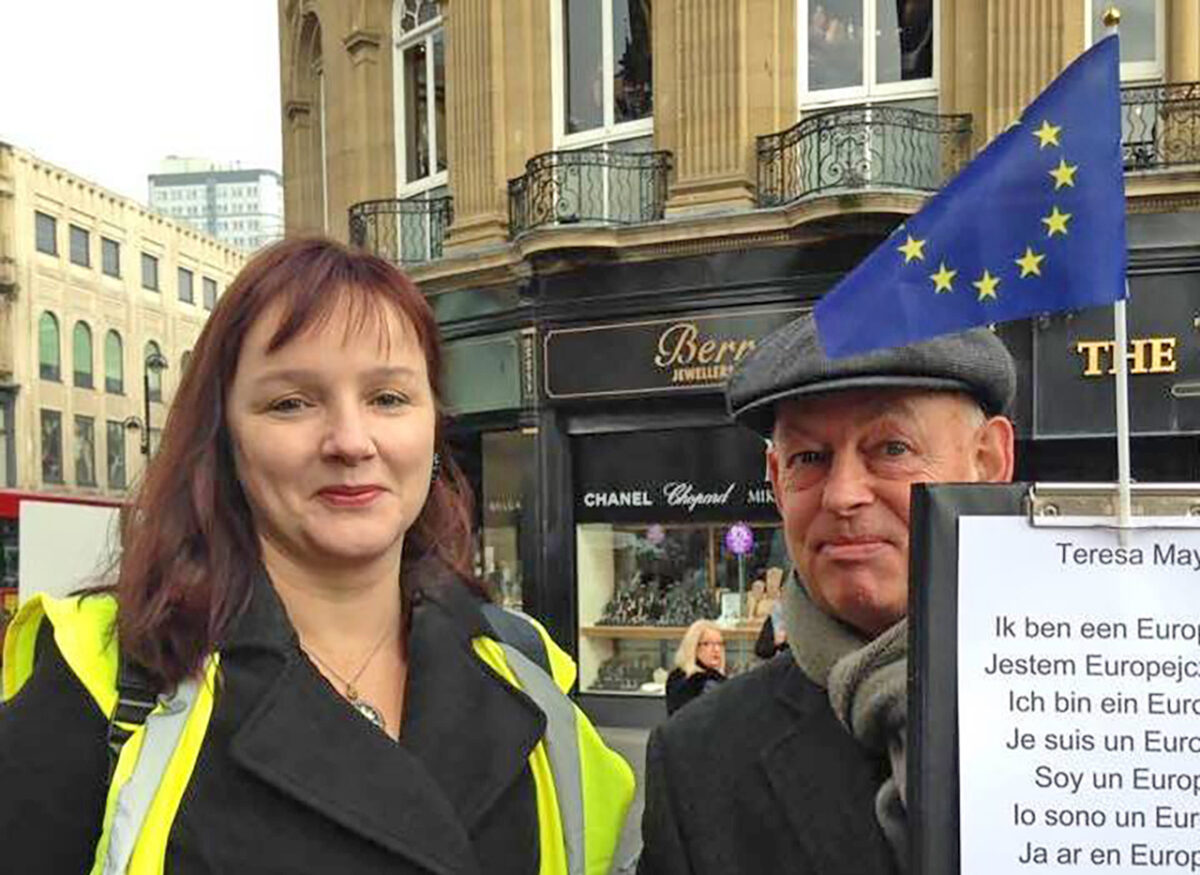 Berr
JEWELLERS
THE
CHANEL Chopard MIK
Teresa May
Ik ben een Europ
Jestem Europejcz
Ich bin ein Euro
Je suis un Euro
Soy un Europ
Io sono un Eur
Ja ar en Europ